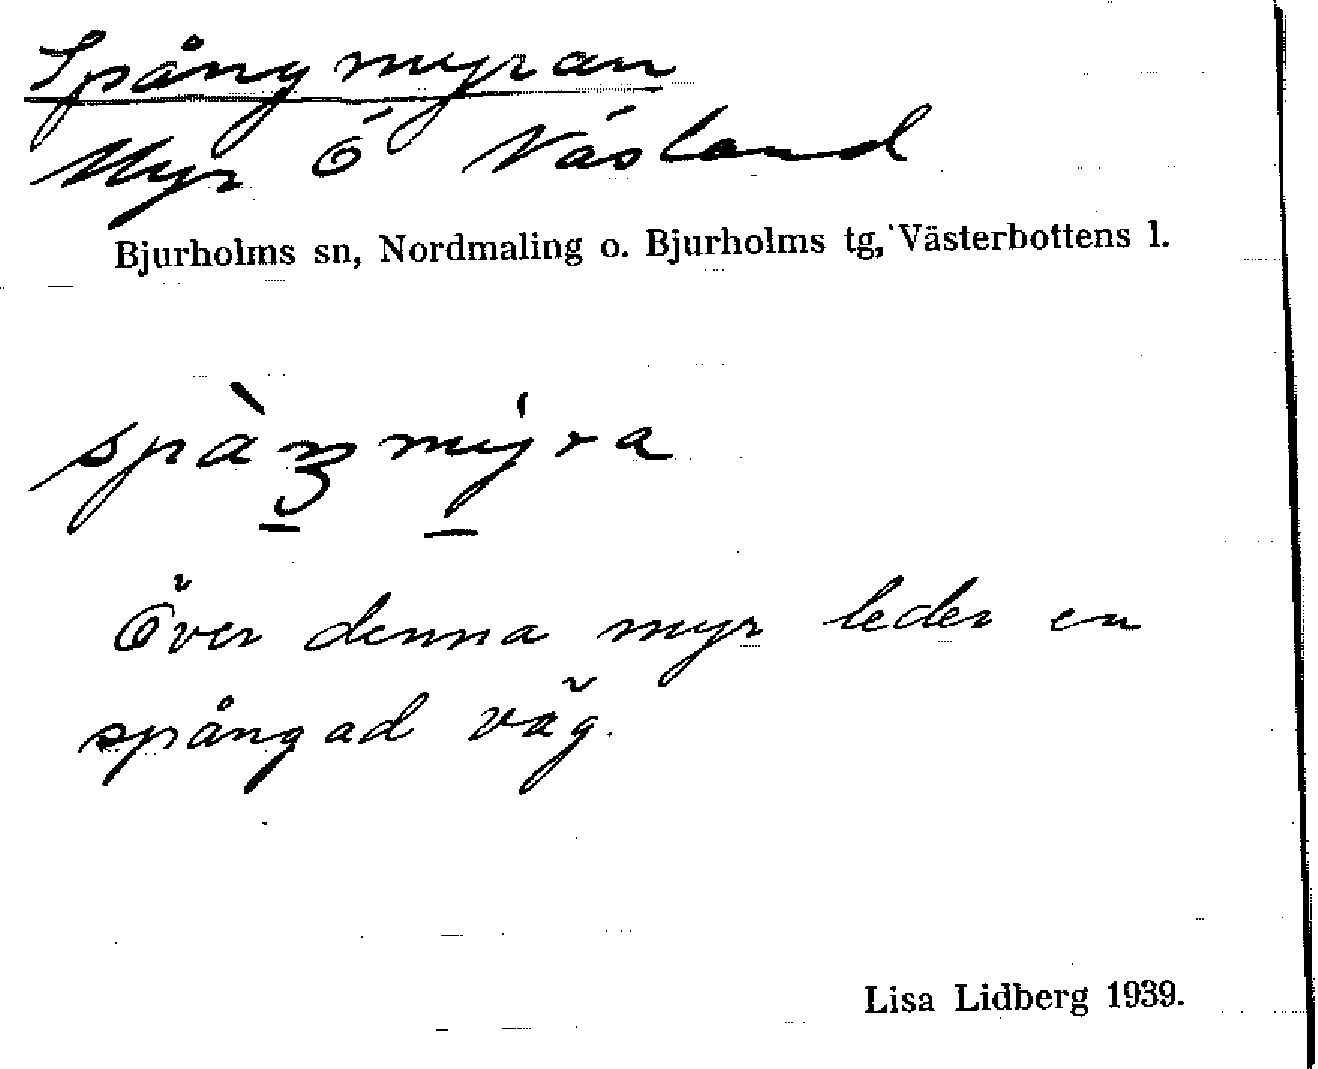 Spångmyran
Myr Ö Näsland
Bjurholms sn, Nordmaling o. Bjurholms tg, Västerbottens l.
spàŋmy̍ra
Över denna myr leder en
spångad väg.
Lisa Lidberg 1939.